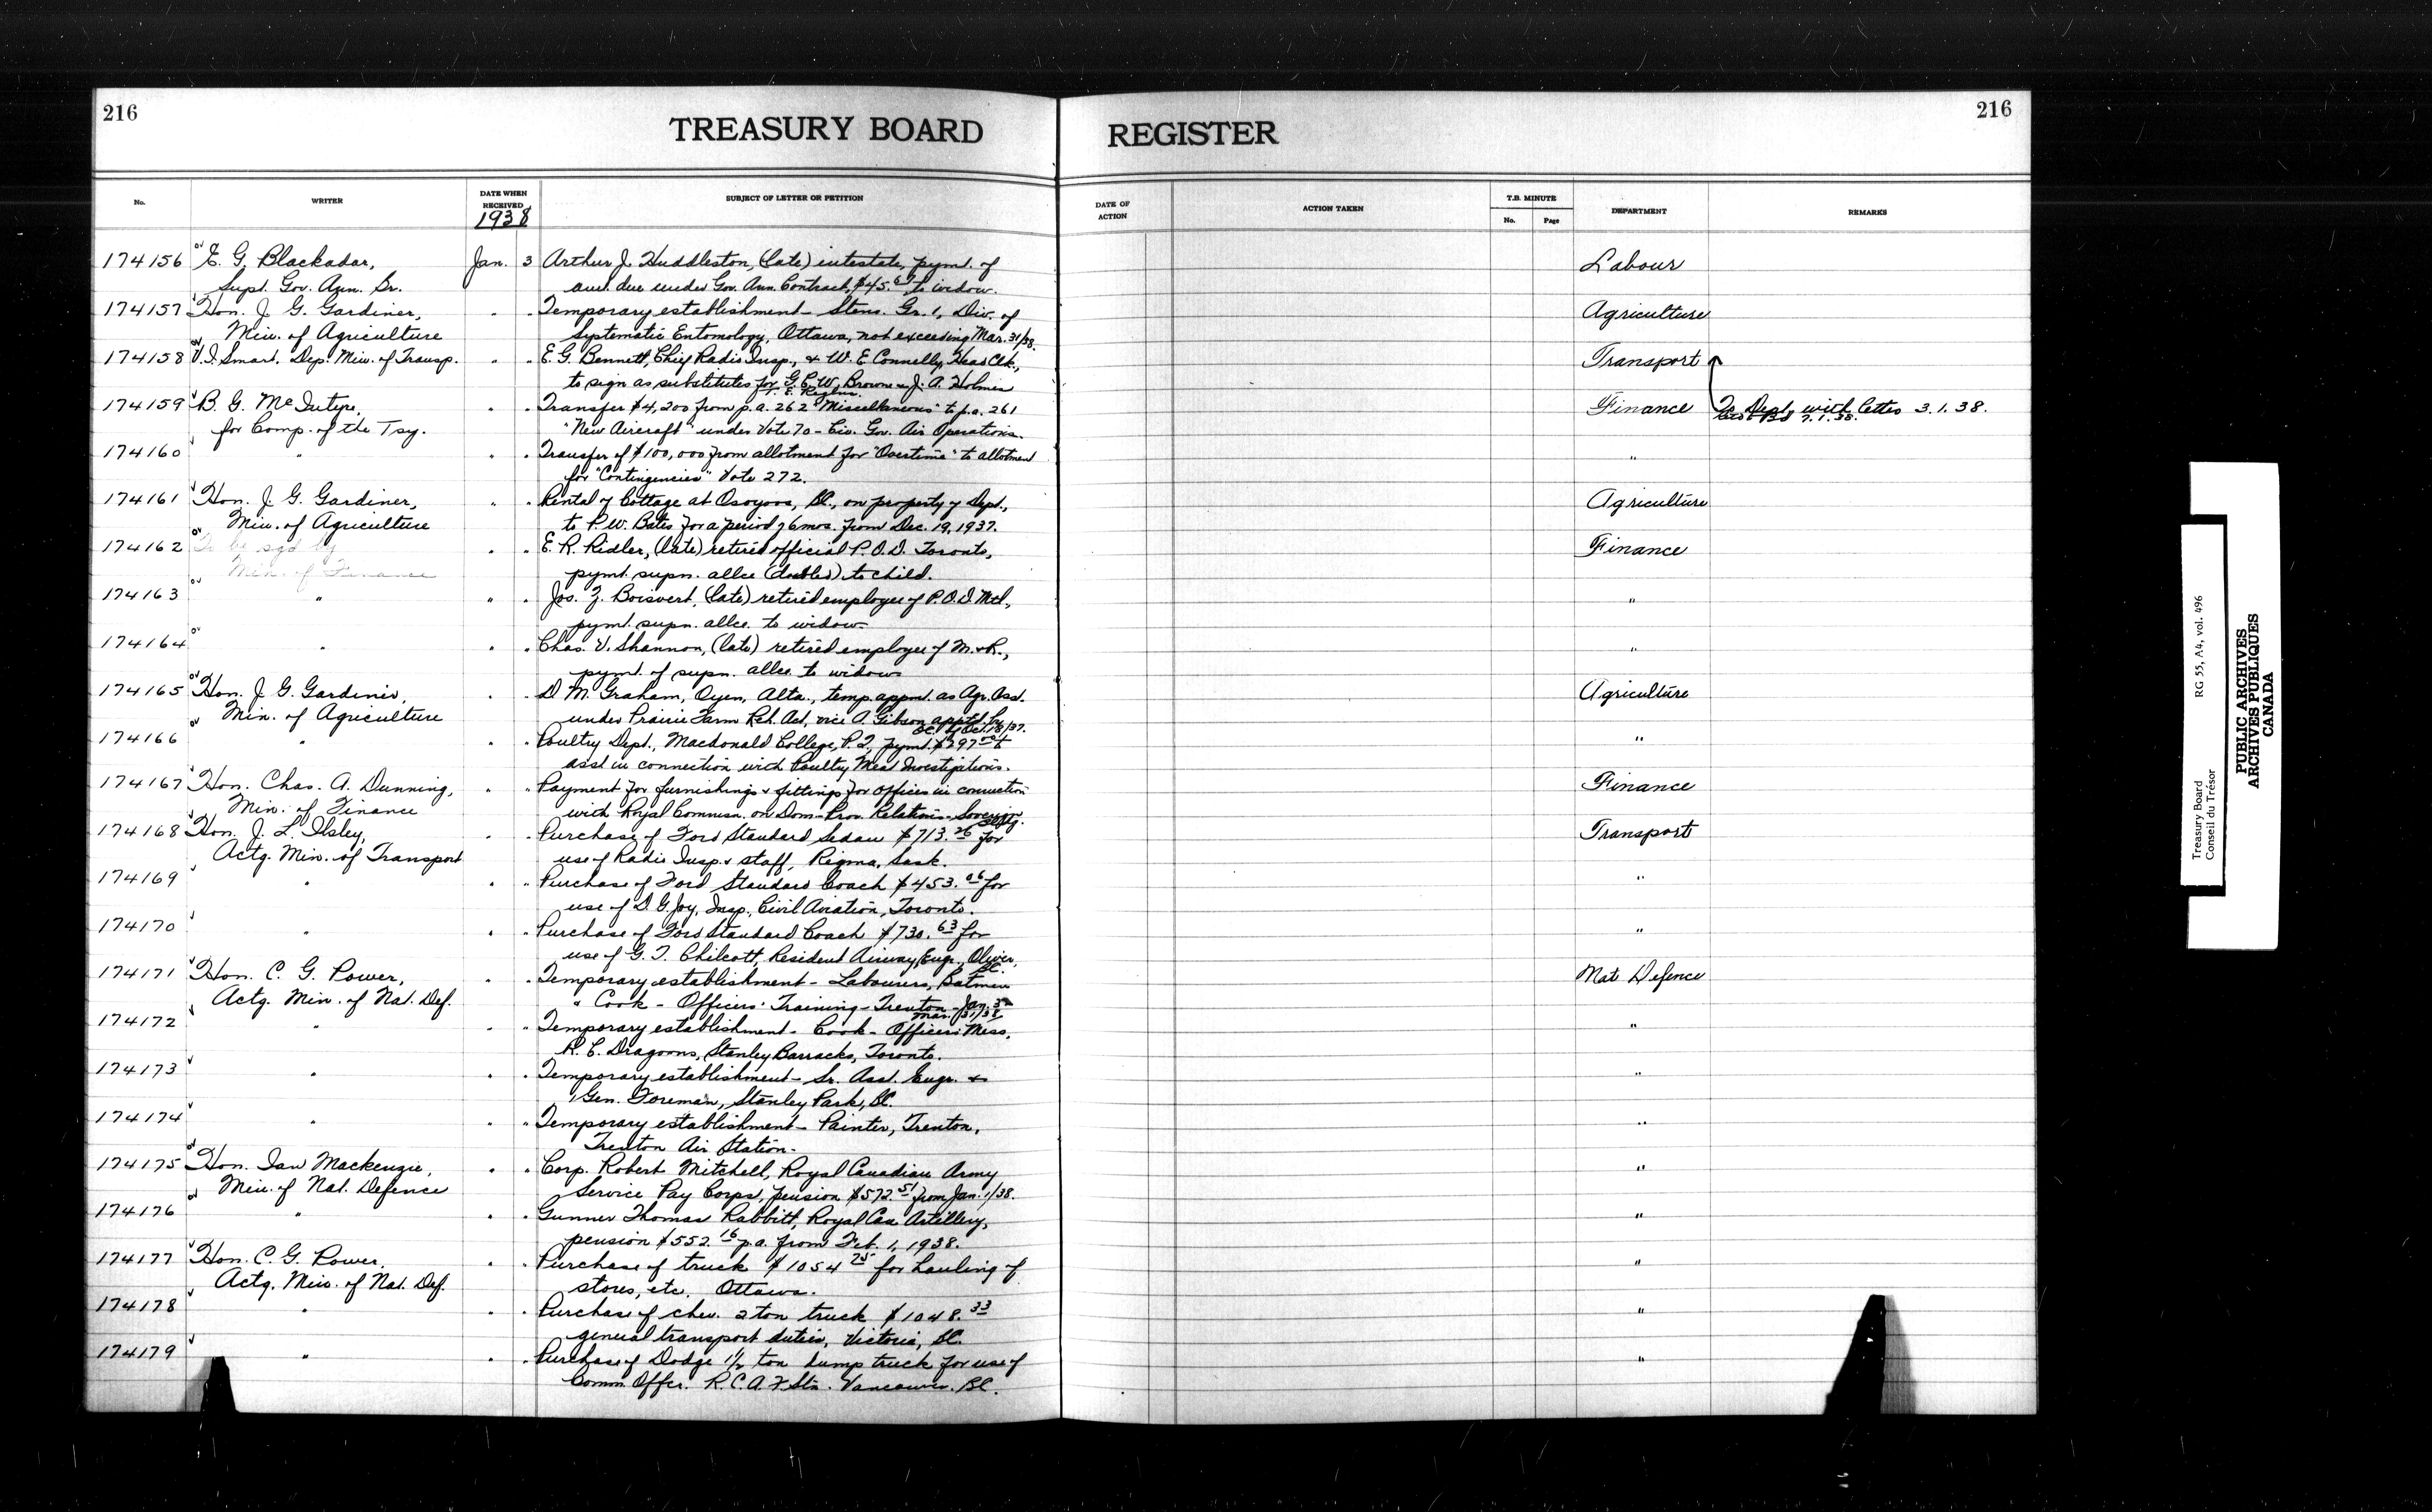 216
TREASURY BOARD
REGISTER
216
No.
WRITER
DATE WHEN RECEIVED
1938
SUBJECT OF LETTER OR PETITION
DATE OF ACTION
ACTION TAKEN
T.B. MINUTE
No.
Page
DEPARTMENT
REMARKS
174156 E. G. Blackadar, Jan. 3 Arthur J. Huddleston, (late) intestate, pymt. of Labour
Supt. Gov. Ann. Br. amt. due under Gov. Ann. Contract, $45. to widow.
174157 Hon. J. G. Gardiner, " " Temporary establishment - Steno. Gr. 1, Div. of Agriculture
Min. of Agriculture Systematic Entomology, Ottawa, not exceeding Mar. 31/38.
174158 V. I. Smart. Dep. Min. of Transp. " " E. G. Bennett, Chief Radio Insp., & W. E. Connelly, Head Clk., Transport
to sign as substitutes for G. C. W. Browne & J. A. Holmes
174159 B. G. McIntyre, " " Transfer $4,200 from p.a. 262 "Miscellaneous" to p.a. 261 Finance To Dept. with letter 3.1.38.
7.1.38.
for Comp. of the Tsy. "New Aircraft" under Vote 70 - Civ. Gov. Air Operations.
174160 " " " Transfer of $100,000 from allotment for "Overtime" to allotment "
for "Contingencies" Vote 272.
174161 Hon. J. G. Gardiner, " " Rental of Cottage at Osoyoos, BC., on property of Dept., Agriculture
Min. of Agriculture to P. W. Bates for a period of 6 mos. from Dec. 19, 1937.
174162 To be sgd by " " E. R. Ridler, (late) retired official P.O.D. Toronto, Finance
Min. of Finance pymt. supn. allce (doubled) to child.
174163 " " " Jos. Z. Boisvert, (late) retired employee of P.O.D. Mtl, "
pymt. supn. allce. to widow.
174164 " " " Chas. V. Shannon, (late) retired employee of M. & R., "
pymt. of supn. allce. to widow
174165 Hon. J. G. Gardiner, " " D. M. Graham, Oyen, Alta., temp. appmt. as Agr. Asst. Agriculture
Min. of Agriculture under Prairie Farm Reh. Act, vice A. Gibson apptd. by
O.C. of Oct. 18/37.
174166 " " " Poultry Dept., Macdonald College, P.Q., pymt. $297.00 to "
asst in connection with Poultry Meat Investigations.
174167 Hon. Chas. A. Dunning, " " Payment for furnishings & fittings for offices in connection Finance
Min. of Finance with Royal Commsn. on Dom-Prov. Relations - Sovereign Bldg.
174168 Hon. J. L. Ilsley, " " Purchase of Ford Standard Sedan $713.26 for Transport
Actg. Min. of Transport use of Radio Insp. & staff, Regina, Sask.
174169 " " " Purchase of Ford Standard Coach $453.06 for "
use of D. G. Joy, Insp., Civil Aviation, Toronto.
174170 " " " Purchase of Ford Standard Coach $730.63 for "
use of G. T. Chilcott, Resident Airway Engr., Oliver, BC.
174171 Hon. C. G. Power, " " Temporary establishment - Labourers, Batmen Nat Defence
Actg. Min. of Nat. Def. & Cook - Officers' Training - Trenton - Jan. 3 Mar. 31/38
174172 " " " Temporary establishment - Cook - Officers' Mess, "
R. C. Dragoons, Stanley Barracks, Toronto.
174173 " " " Temporary establishment - Sr. Asst. Engr. & "
1 Gen. Foreman, Stanley Park, BC.
174174 " " " Temporary establishment - Painter, Trenton, "
Trenton Air Station.
174175 Hon. Ian Mackenzie, " " Corp. Robert Mitchell, Royal Canadian Army "
Min. of Nat. Defence Service Pay Corps, pension $572.51 from Jan. 1/38.
174176 " " " Gunner Thomas Rabbitt, Royal Can Artillery, "
pension $552.16 p.a. from Feb. 1, 1938.
174177 Hon. C. G. Power, " " Purchase of truck $1054.25 for hauling of "
Actg. Min. of Nat. Def. stores, etc. Ottawa.
174178 " " " Purchase of chev. 2 ton truck $1048.33 "
general transport duties, Victoria, BC.
174179 " " " Purchase of Dodge 1½ ton dump truck for use of "
Comm. Offcr. R.C.A.F. Stn. Vancouver. BC.
Treasury Board RG 55, A4, vol. 496
Conseil du Trésor
PUBLIC ARCHIVES
ARCHIVES PUBLIQUES
CANADA